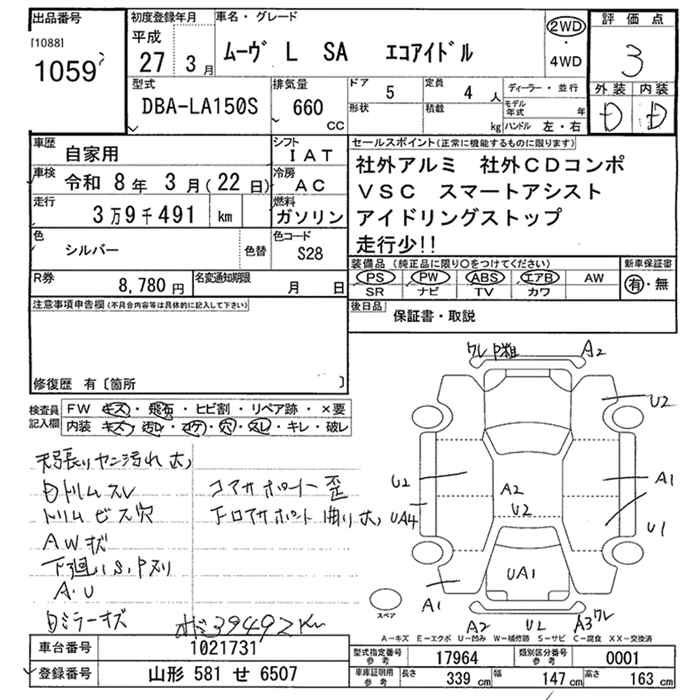 出品番号
[1088]
1059
初度登録年月
平成
27 3月
車名・グレード
ムーヴ L SA エコアイドル
2WD
・
4WD
評価点
3
外装 内装
D D
型式
DBA-LA150S
排気量
660
CC
ドア
5
定員
4 人
形状
積載
kg
ディーラー・並行
モデル年式 年
ハンドル 左・右
車歴
自家用
シフト
IAT
車検
令和 8年 3月(22日)
冷房
AC
走行
3万9千491 km
燃料
ガソリン
色
シルバー
色替
色コード
S28
R券
8,780円
名変通知期限
月 日
セールスポイント(正常に機能するものに限ります)
社外アルミ 社外CDコンポ
VSC スマートアシスト
アイドリングストップ
走行少!!
装備品(純正品に限り○をつけてください)
PS PW ABS エアB AW
SR ナビ TV カワ
新車保証書
有・無
後日品
保証書・取説
注意事項申告欄(不具合内容等は具体的に記入して下さい)
修復歴 有〔箇所 〕
検査員記入欄
FW キズ・飛石・ヒビ割・リペア跡・×要
内装 キズ・汚レ・コゲ・穴・スレ・キレ・破レ
天張りヤニ汚れ大
内トリムスレ
トリムビス穴
AWキズ
下廻りS,Pスリ
A・U
コアサポート歪
下ロアサポート曲り大
39492Km
ワレ
A2
U2
U2
A1
A2
U2
UA4
U1
UA1
A1
A2
U2
A3ワレ
スペア
A－キズ E－エクボ U－凹み W－補修跡 S－サビ C－腐食 XX－交換済
車台番号
1021731
登録番号
山形 581 せ 6507
型式指定番号
参考
17964
類別区分番号
参考
0001
車庫証明用
参考
長さ
339 cm
幅
147 cm
高さ
163 cm